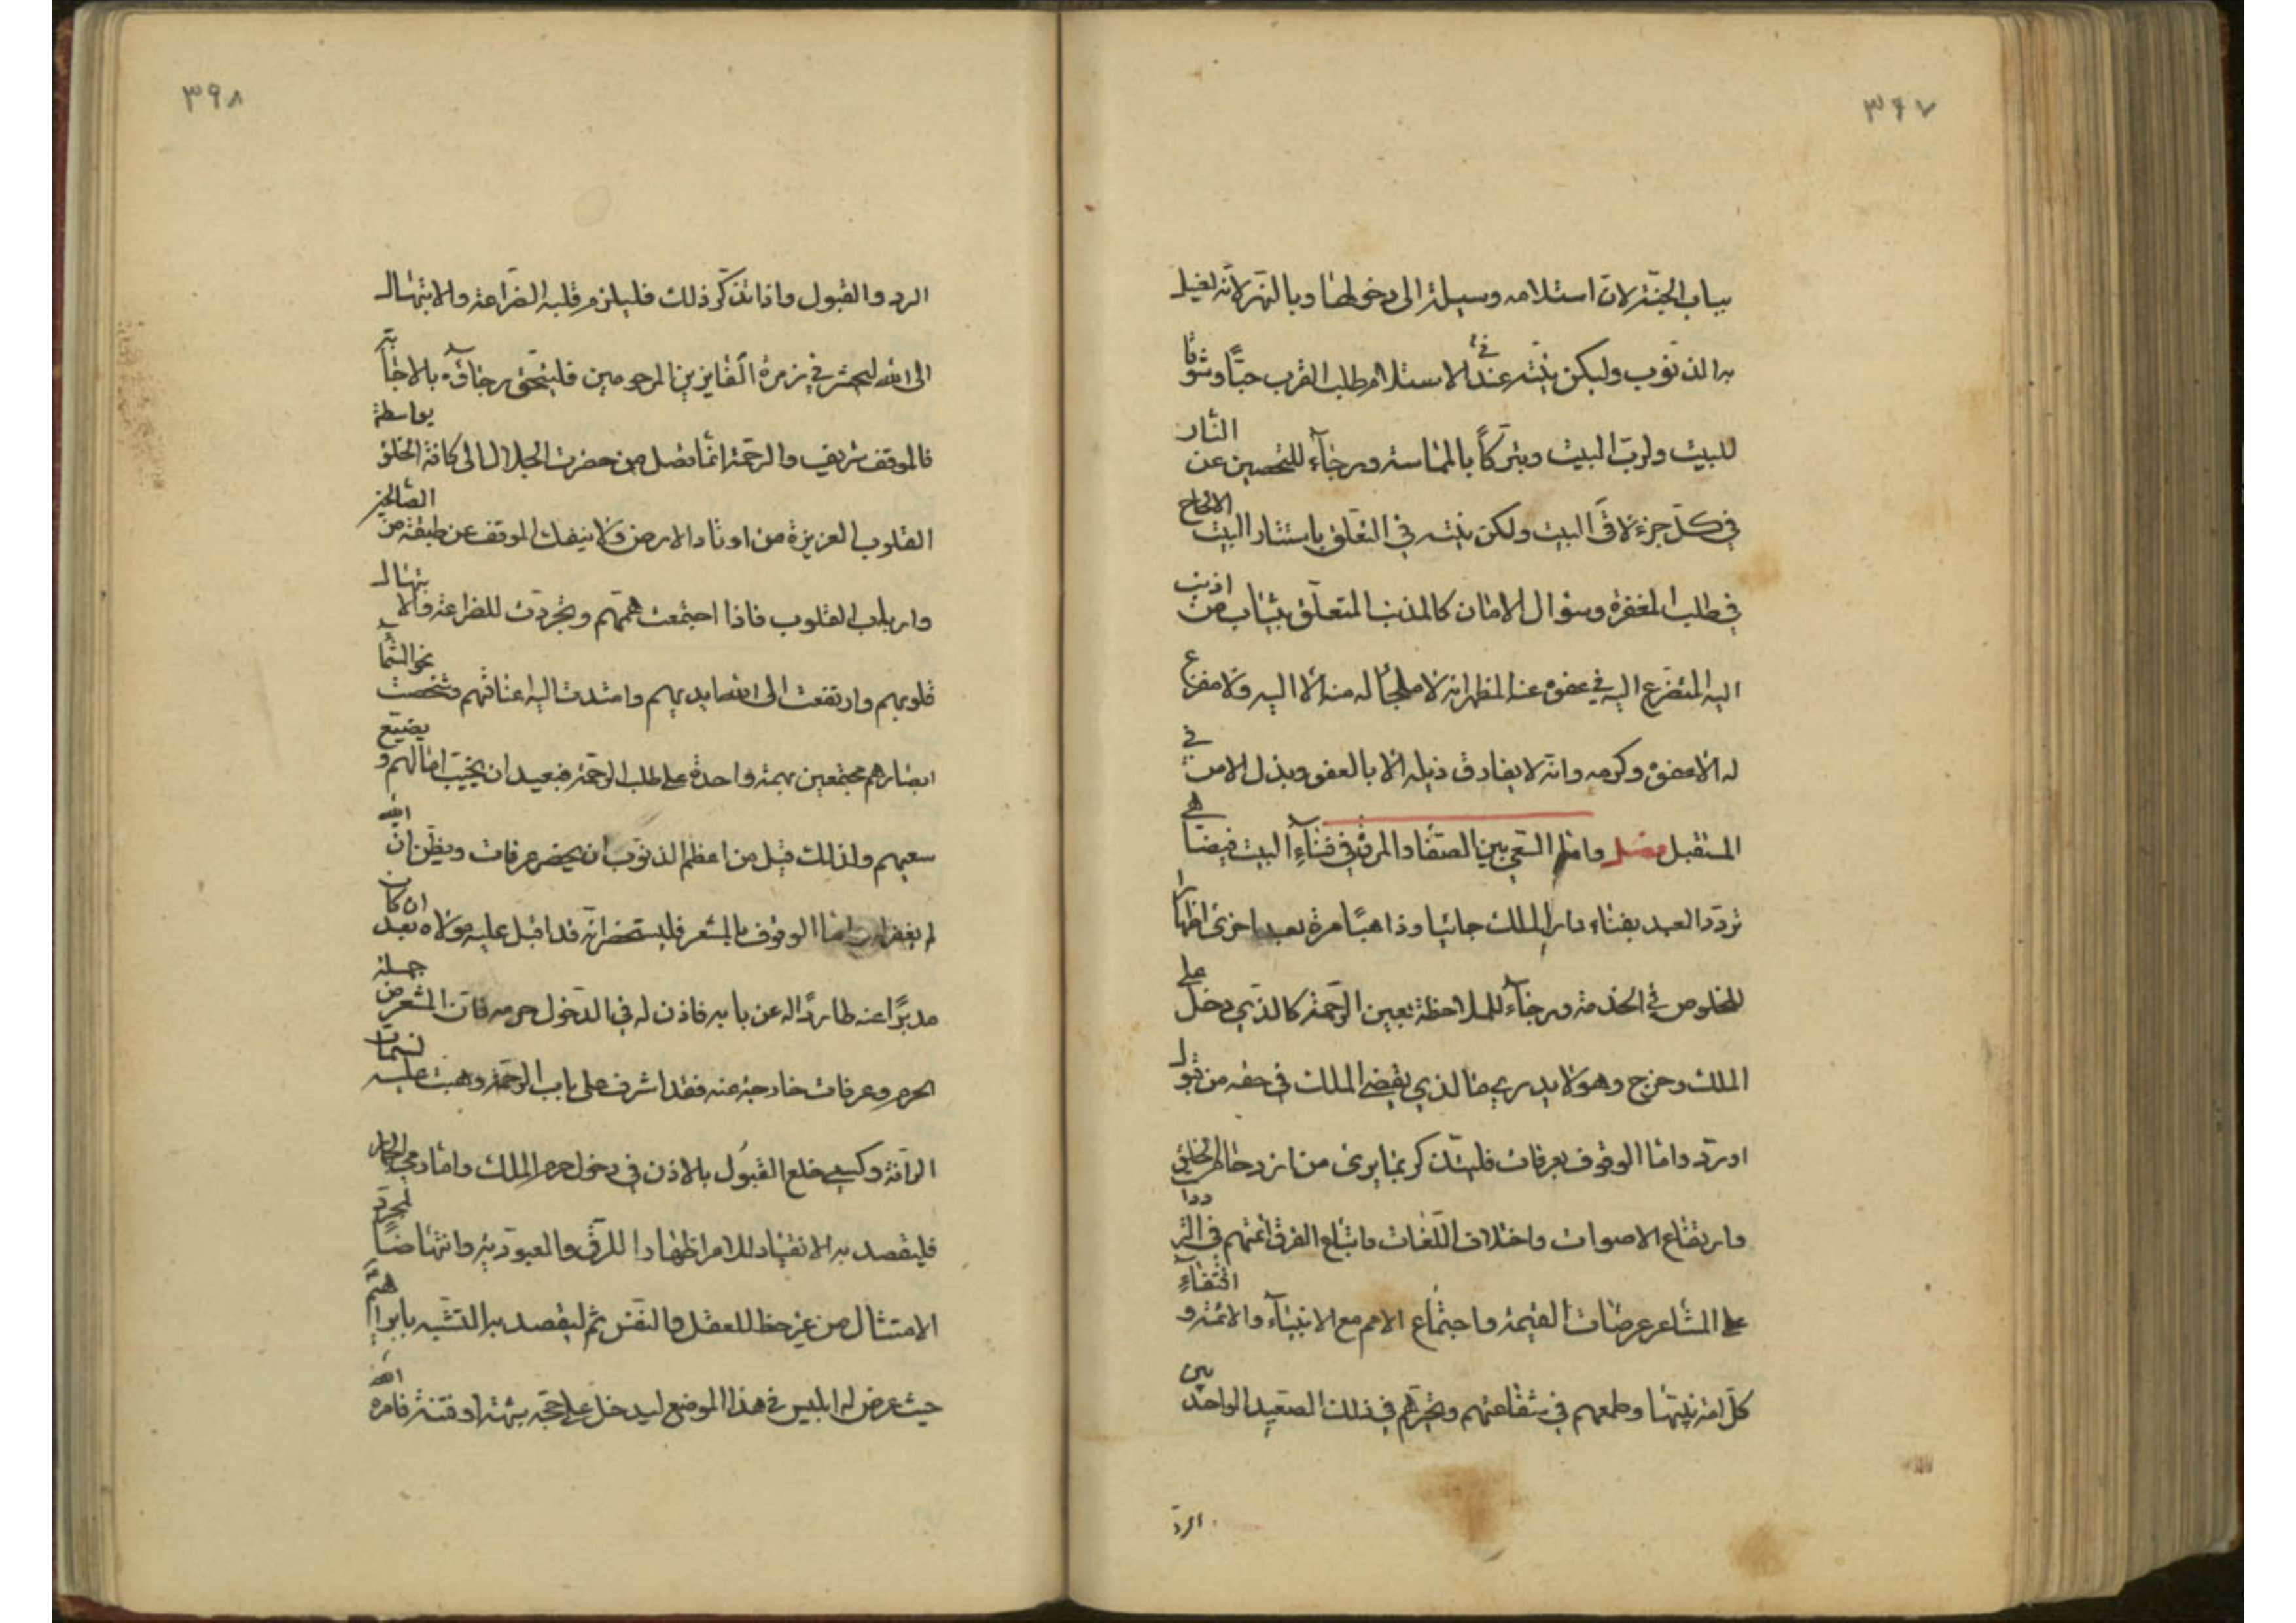 ٣٩٧
بباب الجنّة لانّ استلامه وسيلة الى دخولها وبالنهر لانّه يغسل
به الذنوب وليكن نيّته في عند الاستلام طلب القرب حبّا وشوقا
للبيت ولربّ البيت وتبرّكاً بالمماسة ورجآء للتحصين عن النار
في كلّ جزء لاقى البيت ولكن نيّته في التعلّق باستار البيت الالحاح
في طلب المغفرة وسؤال الامان كالمذنب المتعلّق بثياب من اذنب
اليه المتضرّع اليه في عفوه عنه المظهر انه لا ملجأ له منه الّا اليه ولا مفزع
له الّا عفوه وكرمه وانّه لا يفارق ذيله الّا بالعفو وبذل الامن في
المستقبل فصل وامّا السّعي بين الصّفا والمروة في فنآء البيت فيضاهي
تردّد العبد بفناء دار الملك جائيا وذاهبًا مرة بعد اخرى اظهارا
للخلوص في الخدمة ورجآء للملاحظة بعين الرّحمة كالذي دخل على
الملك وخرج وهو لا يدري ما الذي يقضي الملك في حقه من قبول
اوردّ وامّا الوقوف بعرفات فليتذكر بما يرى من ازدحام الخلق
وارتفاع الاصوات واختلاف اللّغات واتباع الفرق ائمتهم في التردّدا
على المشاعر عرضات القيمة واجتماع الامم مع الانبيآء والائمة و اقتفاء
كلّ امّة نبيّها وطمعهم في شفاعتهم وتحيّرهم في ذلك الصّعيد الواحد بين
الردّ
٣٩٨
الرد والقبول واذا تذكّر ذلك فليلزم قلبه الضّراعة والابتهال
الى الله ليحشر في زمرة الفايزين المرحومين فليتحقق رجآؤه بالاجابة
فالموقف شريف والرحمة انّما تصل من حضرت الجلال الى كافة الخلق بواسطة
القلوب العزيزة من اوتاد الارض ولا ينفك الموقف عن طبقة من الصّالحين
وارباب القلوب فاذا اجتمعت هممهم وتجرّدت للضراعة والابتهال
قلوبهم وارتفعت الى الله ايديهم وامتدت اليه اعناقهم وشخصت نحو السّماء
ابصارهم مجتمعين بهمة واحدة على طلب الرحمة فبعيد ان يخيّب امالهم و يضيّع
سعيهم ولذلك قيل من اعظم الذنوب ان يحضر عرفات ويظن انّ الله
لم يغفر له وامّا الوقوف بالمشعر فليستحضر انّه قد اقبل عليه مولاه بعد ان كان
مدبرًا عنه طاردًا له عن بابه فاذن له في الدّخول حرمه فانّ المشعر من جملة
الحرم وعرفات خارجة عنه فقد اشرف على باب الرّحمة وهبت عليه نسمات
الرّافة وكسي خلع القبول بالاذن في دخول حرم الملك وامّا رمي الجمار
فليقصد به الانقياد للامر اظهارا للرّق والعبوديّة وانتهاضًا لمجرّد
الامتثال من غير حظ للعقل والنفس ثم ليقصد به التشبّه بابراهيم
حيث عرض له ابليس في هذا الموضع ليدخل على حجّه شبهة او فتنة فامره الله